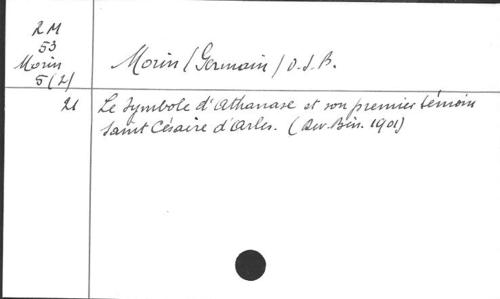 2 M
53
Morin
5(2)
Morin (Germain) O.S.B.
21
Le Symbole d'Athanase et son premier témoin
Saint Césaire d'Arles. (Rev. Bén. 1901)